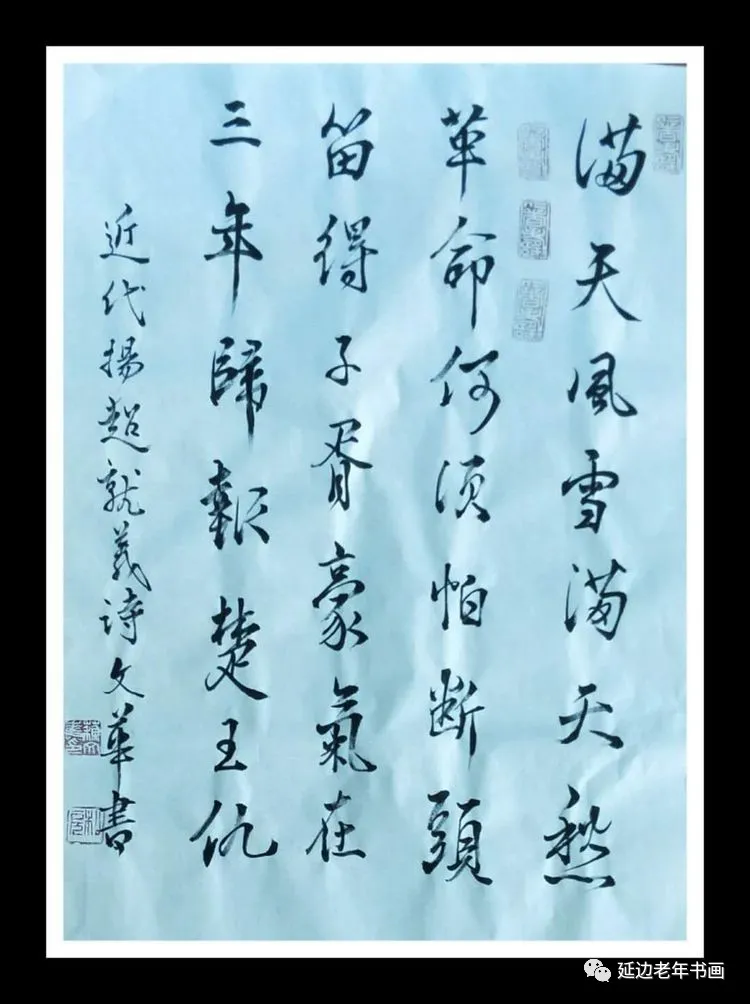 满天風雪满天愁
革命何须怕断頭
留得子胥豪氣在
三年歸報楚王仇
近代揚超就義诗文華書
延边老年书画